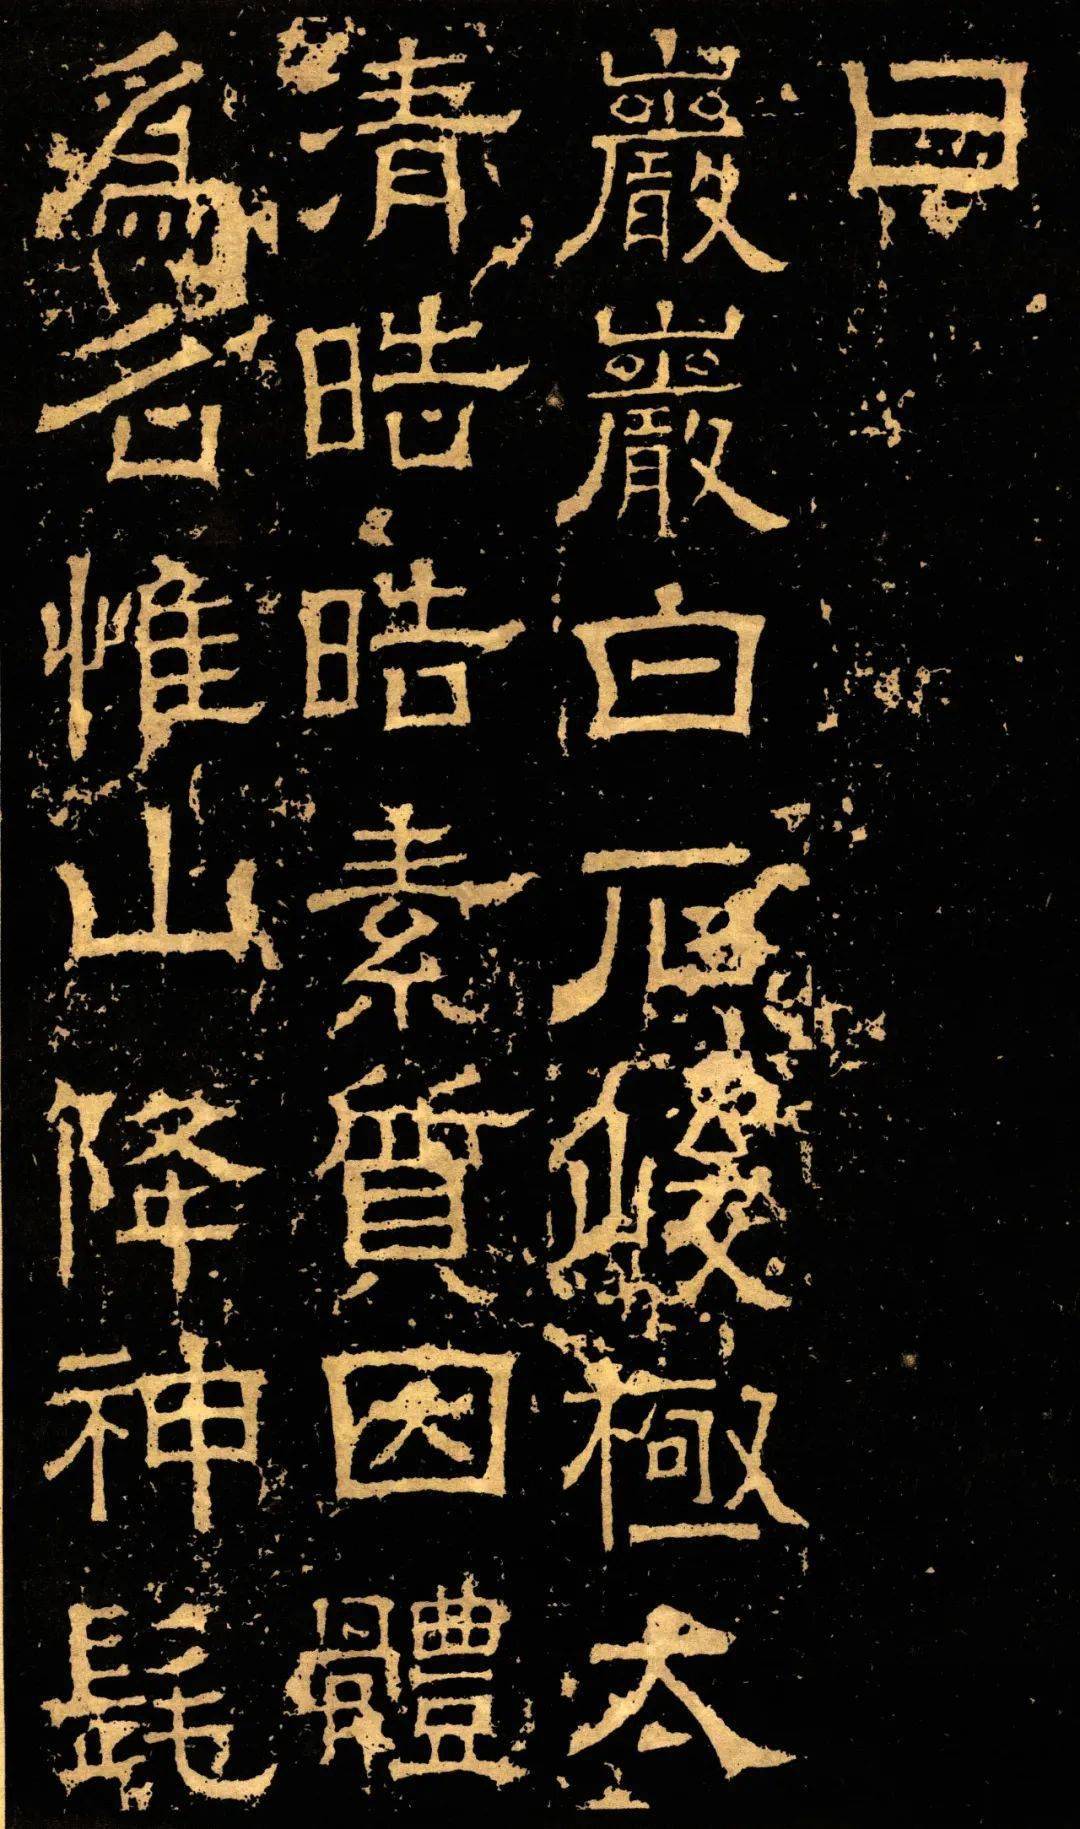 曰
巖巖白石峻極太
清晧晧素質因體
爲名惟山降神髦